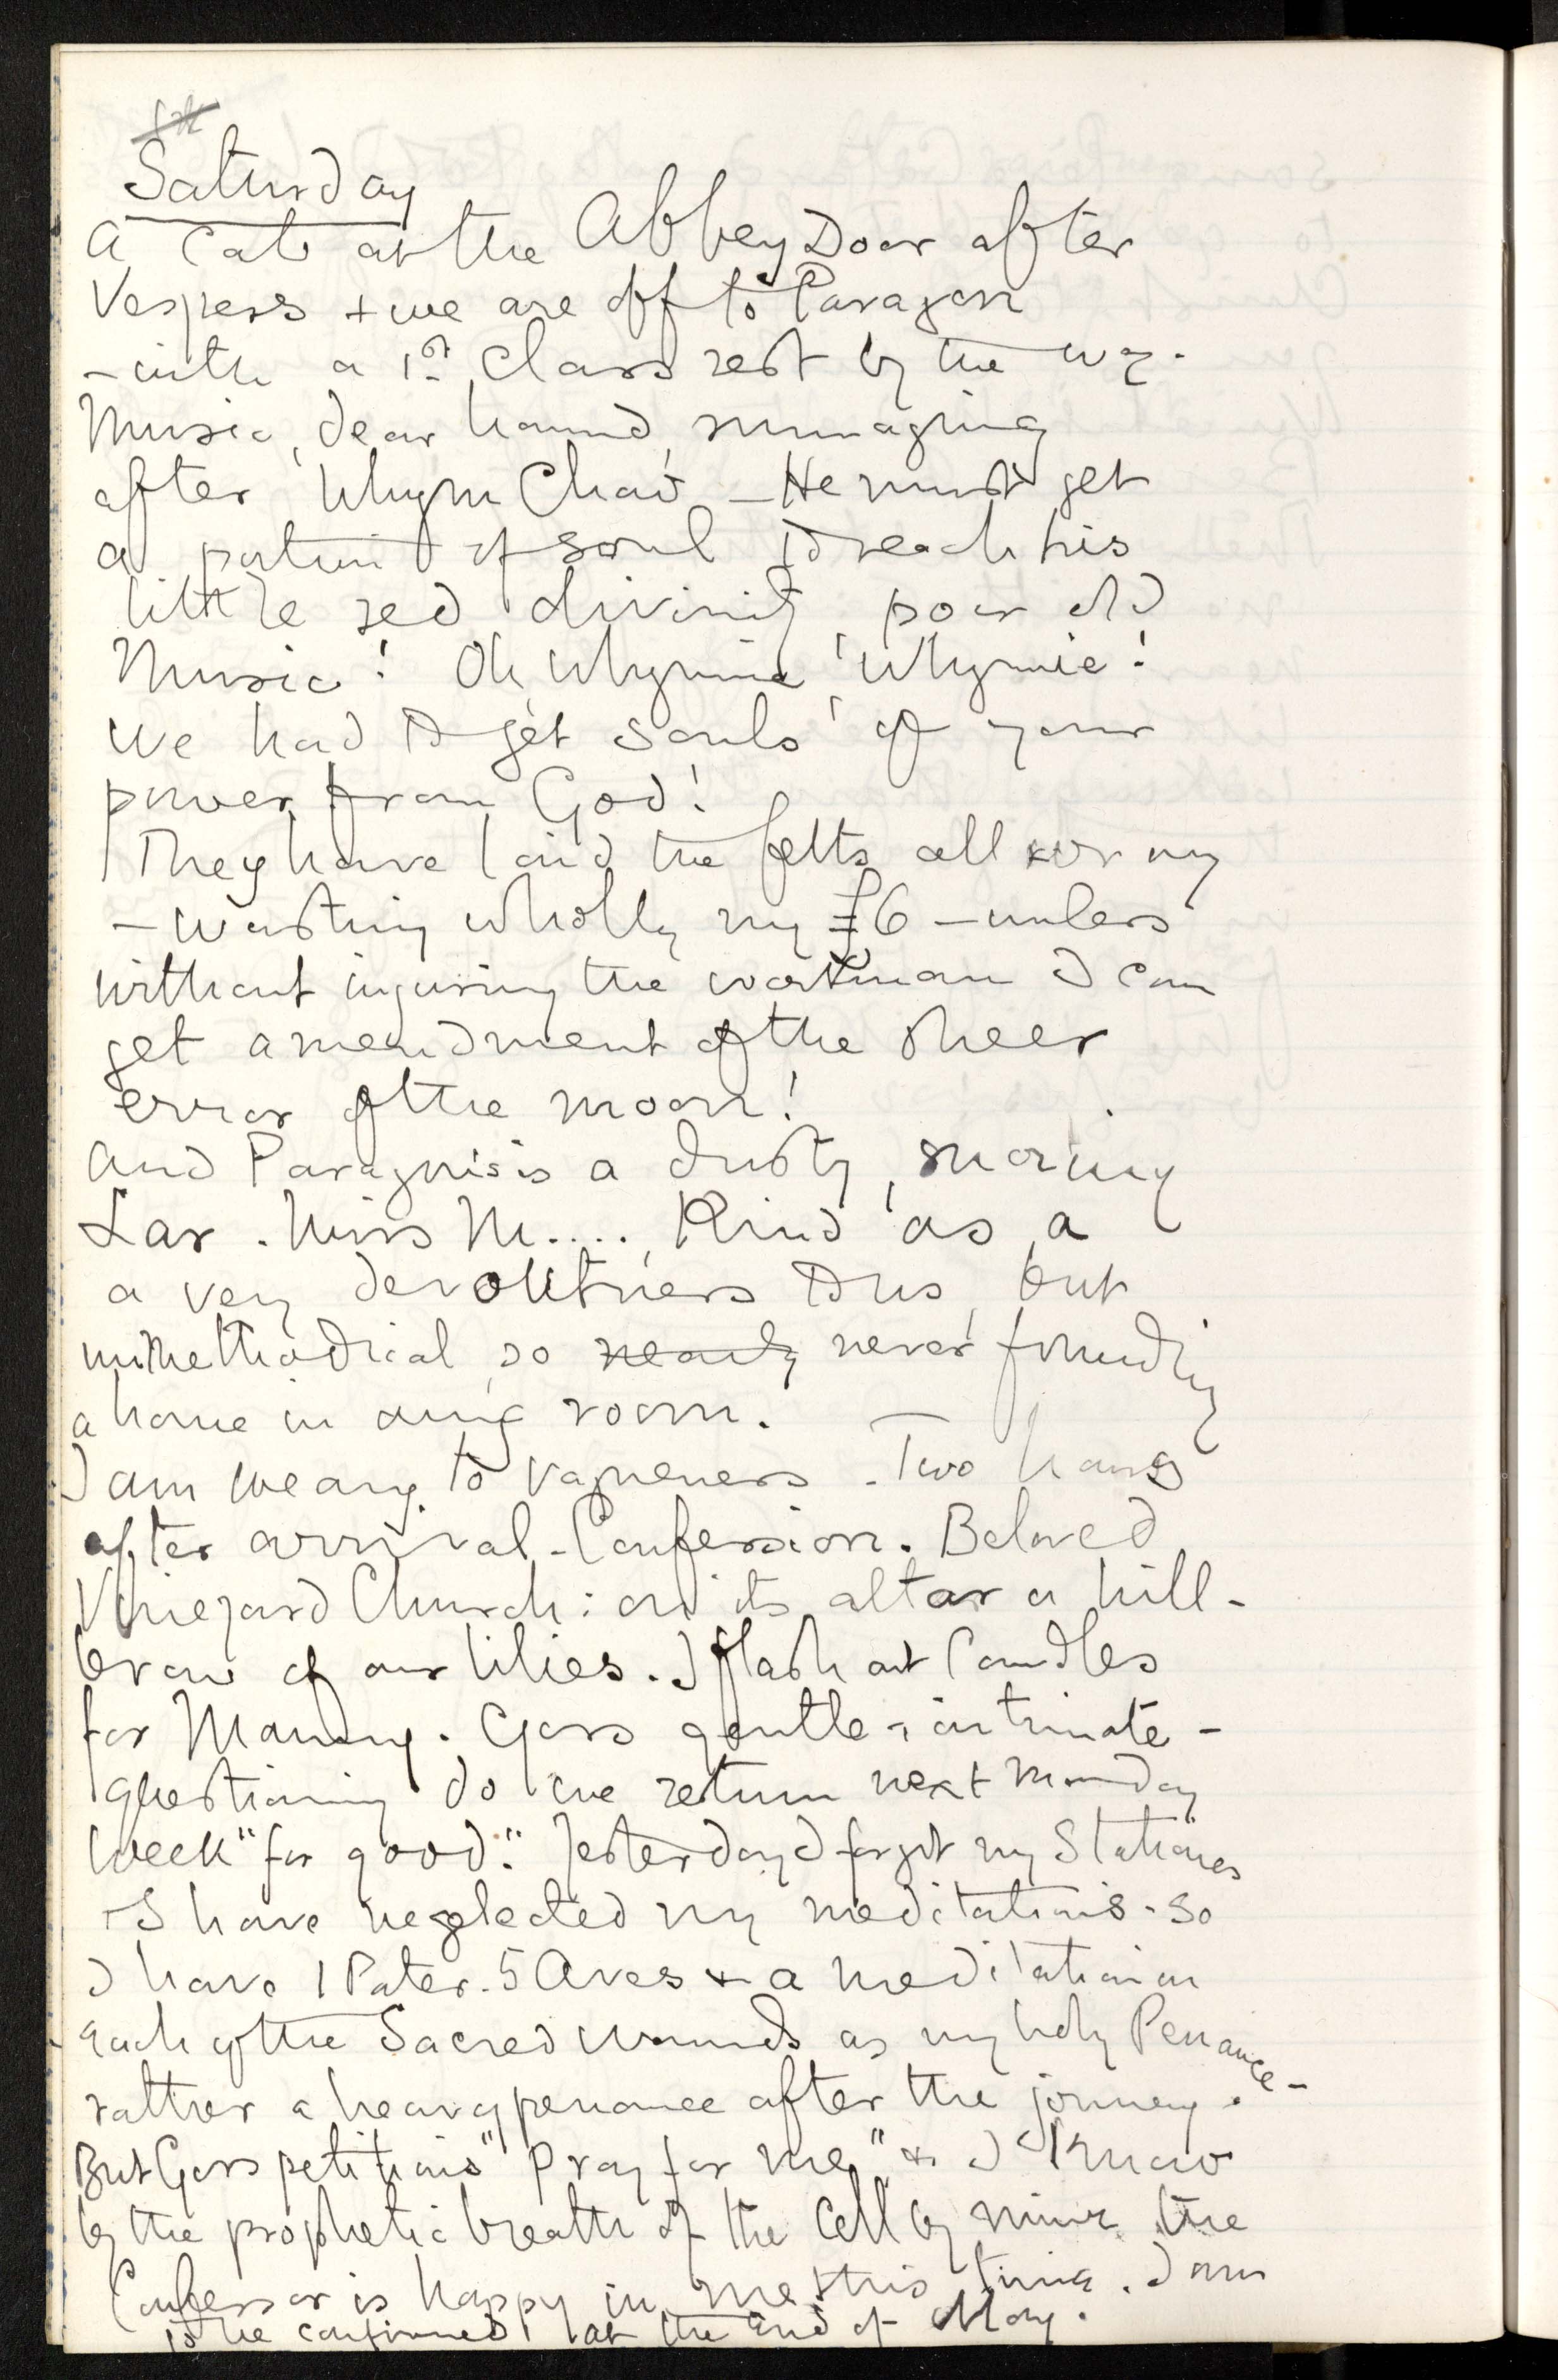 Saturday
A Cab at the Abbey Door after
Vespers + we are off to Paragon
- with a 1st Class rest by the way.
Music, dear hound, rummaging
after Whym Chow - He must get
a portion of soul to reach his
little red divinity, poor old
Music! Oh, Whymie, Whymie!
We had to get souls of your
power from God!
They have laid the felts all wrong
- wasting wholly my £6 - unless
without injuring the workman I can
get amendment of the sheer
error of the moon!
And Paragon is is a dusty, snoring
Lar. Miss M.... Kind as a
a very devoutness to us, but
unmethodical, so nearly never founding
a home in any room.
I am weary to vagueness. Two hours
after arrival - Confession. Beloved
Vineyard Church: on its altar a hill-
brow of our lilies. I flash out Candles
for Manning. Goss gentle, intimate -
questioning do we return next Monday
week "for good." Yesterday I forgot my Stations
- I have neglected my meditations - so
I have 1 Pater - 5 Aves & a meditation on
each of the Sacred Wounds as my holy Penance -
rather a heavy penance after the journey.
But Goss petitions "Pray for me" & I know
by the prophetic breath of the Cell by mine the
Confessor is happy in me this time. I am
to be confirmed at the end of May.